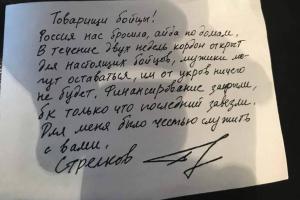 Товарищи бойцы!
Россия нас бросила, айда по домам.
В течение двух недель кордон открыт
для настоящих бойцов, мужики мо-
гут оставаться, им от укров ничего
не будет. Финансирование закрыли,
бк только что последний завезли.
Для меня было честью служить
с вами.
Стрелков